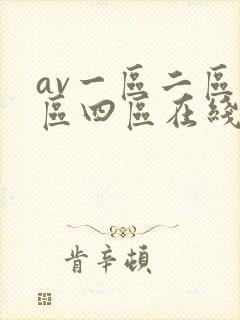 av一區二區
區四區在綫
肯辛頓